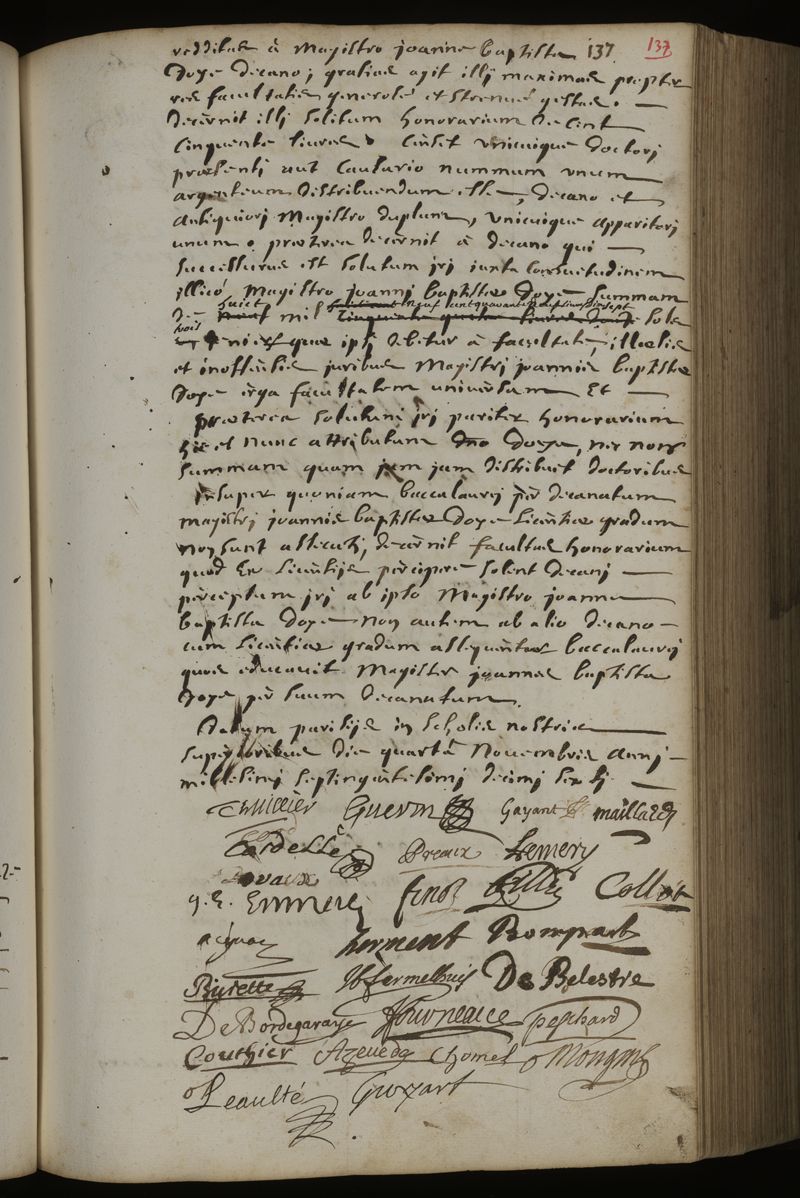 redditas à Magistro joanne baptista 137. 137
Doye decano; gratias agit illj maximas propter
res facultatis generosé et strenué gestas.
Decernit illj solitum honorarium de cent
Cinquente liures. Censet vnicuique doctorj
præsentj aut Causario nummum vnum
argenteum distribuendum esse, decano et
Antiquiorj Magistro duplum, vnicuique apparitorj
unum. præterea decernit à decano qui
Successurus est solutum jrj juxta Consuetudinem
illico Magistro joannj baptistæ Doye summam
de huict mil neuf cent quarante sept
sols
trois deniers quæ ipsj debitur à facultate, illæsis
et inoffensis juribus Magistrj joannis baptistæ
Doye erga facultatem universam Et
præterea solutum jrj pariter honorarium
hic et nunc attributum dno Doye, nec non
summam quam jam jam distribuit doctoribus
Insuper quoniam baccalaurej per decanatum
magistrj joannis baptistæ Doye Licentiæ gradum
non sunt assecutj, decernit facultas honorarium
quod ex Licentijs percipere solent decanj
perceptum jrj ab ipso Magistro joanne
baptista Doye non autem ab alio decano
cum Licentiæ gradum assequentur baccalaurej
quos educauit Magister joannes baptista
Doye per suum decanatum.
Datum parisijs in scholis nostris
superioribus die quartâ Nouembris annj
millesimj septingentesimj decimj sextj
Thuillier Guerin Gayant maillard
De Preaux Lemery
Devaux
g. E. Emmerez finot Collot
Herment Bompart
Burette Hermelhuis De Belestre
De Bordegaraye Tourneaire pephard
Couthier Azevedo Chomel Mongin
Leaulté Guozart